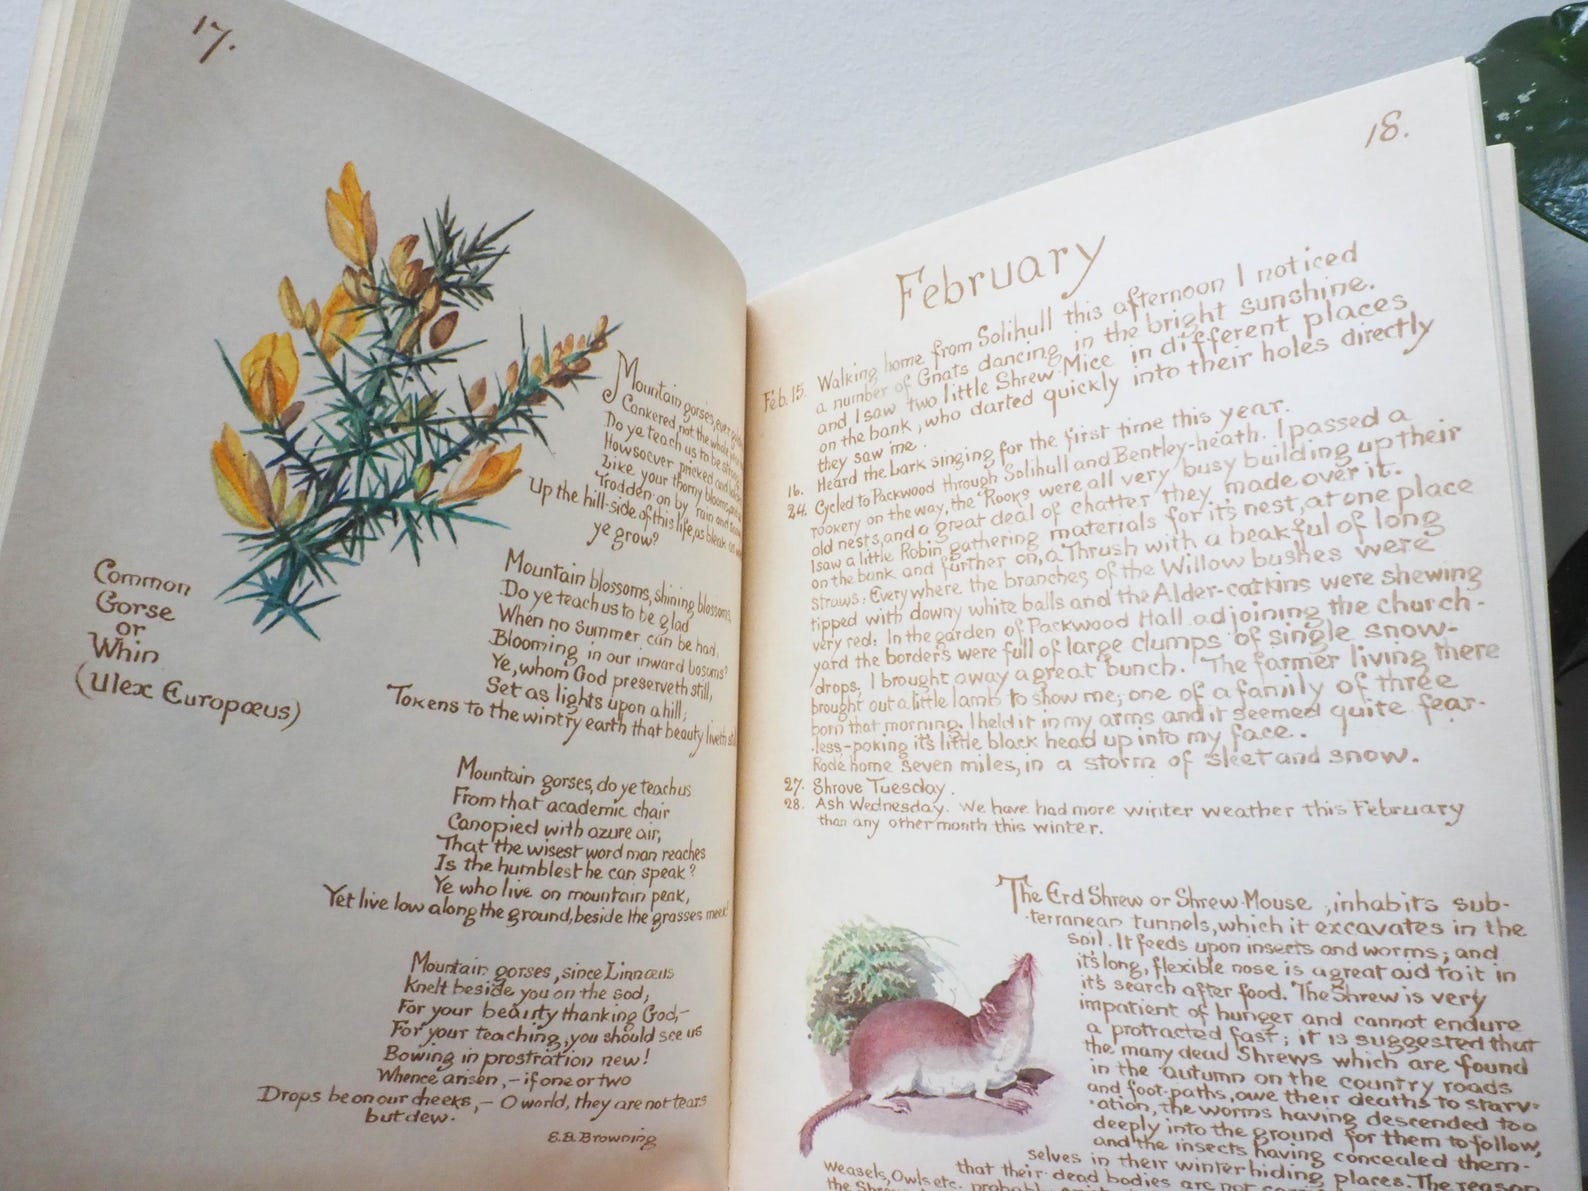 17.
Mountain gorses, ever
Cankered not the whole year
Do ye teach us to be strong,
Howsoever pricked and
Like your thorny blooms,
Trodden on by rain and
Up the hill-side of this life, as bleak as
ye grow?
Mountain blossoms, shining blossoms,
Do ye teach us to be glad
When no summer can be had,
Blooming in our inward bosoms?
Ye, whom God preserveth still,
Set as lights upon a hill,
Tokens to the wintry earth that beauty liveth
Mountain gorses, do ye teach us
From that academic chair
Canopied with azure air,
That the wisest word man reaches
Is the humblest he can speak?
Ye who live on mountain peak,
Yet live low along the ground, beside the grasses meek!
Mountain gorses, since Linnæus
Knelt beside you on the sod,
For your beauty thanking God,–
For your teaching, you should see us
Bowing in prostration new!
Whence arisen,– if one or two
Drops be on our cheeks,– O world, they are not tears
but dew.
E.B. Browning
Common
Gorse
or
Whin
(Ulex Europœus)
18.
February
Feb. 15. Walking home from Solihull this afternoon I noticed
a number of Gnats dancing in the bright sunshine.
and I saw two little Shrew-Mice in different places
on the bank, who darted quickly into their holes directly
they saw me.
16. Heard the Lark singing for the first time this year.
24. Cycled to Packwood through Solihull and Bentley-heath. I passed a
rookery on the way, the Rooks were all very busy building up their
old nests, and a great deal of chatter they made over it.
I saw a little Robin gathering materials for its nest, at one place
on the bank and further on, a Thrush with a beakful of long
straws. Everywhere the branches of the Willow bushes were
tipped with downy white balls and the Alder-catkins were shewing
very red. In the garden of Packwood Hall adjoining the church-
yard the borders were full of large clumps of single snow-
drops. I brought away a great bunch. The farmer living there
brought out a little lamb to show me, one of a family of three
born that morning. I held it in my arms and it seemed quite fear-
-less-poking it's little black head up into my face.
Rode home seven miles, in a storm of sleet and snow.
27. Shrove Tuesday.
28. Ash Wednesday. We have had more winter weather this February
than any other month this winter.
The Erd Shrew or Shrew-Mouse, inhabits sub-
-terranean tunnels, which it excavates in the
soil. It feeds upon insects and worms; and
it's long, flexible nose is a great aid to it in
it's search after food. The Shrew is very
impatient of hunger and cannot endure
a protracted fast; it is suggested that
the many dead Shrews which are found
in the autumn on the country roads
and foot-paths, owe their deaths to starv-
-ation, the worms having descended too
deeply into the ground for them to follow,
and the insects having concealed them-
selves in their winter hiding places. The reason
that their dead bodies are not
weasels, Owls etc. probably
the